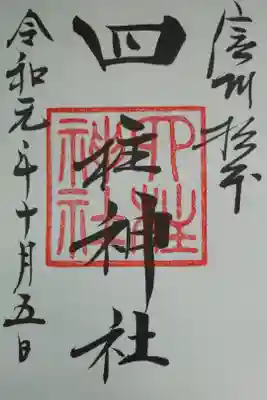 信州松本
四柱神社
四柱神社
令和元年十月五日